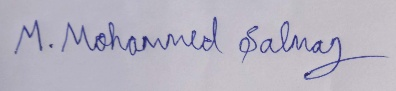 M. Mohammed Salmaz